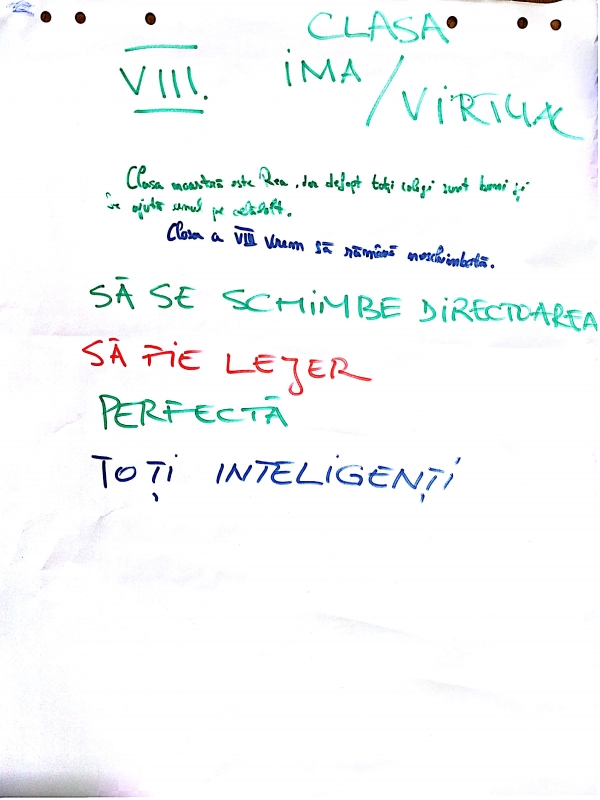 CLASA
VIII. IMA/VIRTUAL
Clasa noastră este Rea, dar defapt toți colegi sunt buni și
se ajută unul pe celălalt.
Clasa a VIII vrem să rămână neschimbată.
SĂ SE SCHIMBE DIRECTOAREA
SĂ FIE LEJER
PERFECTĂ
TOȚI INTELIGENȚI